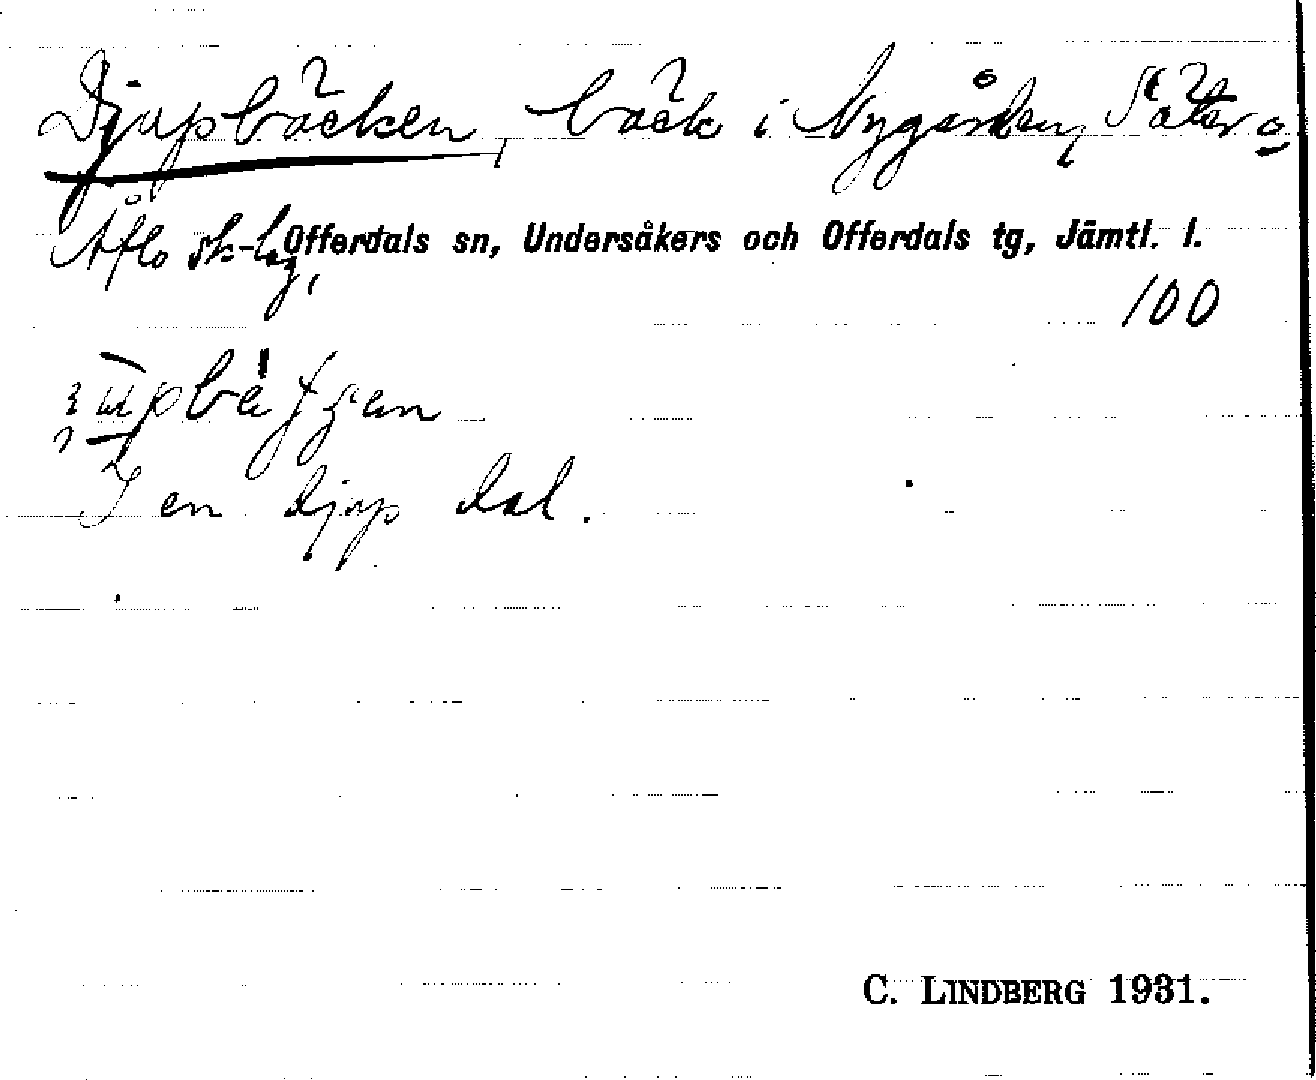 Djupbäcken, bäck i Nygården, Säter o
Åflo sk-lag, Offerdals sn, Undersåkers och Offerdals tg, Jämtl. l.
100
I en djup dal.
C. LINDBERG 1931.